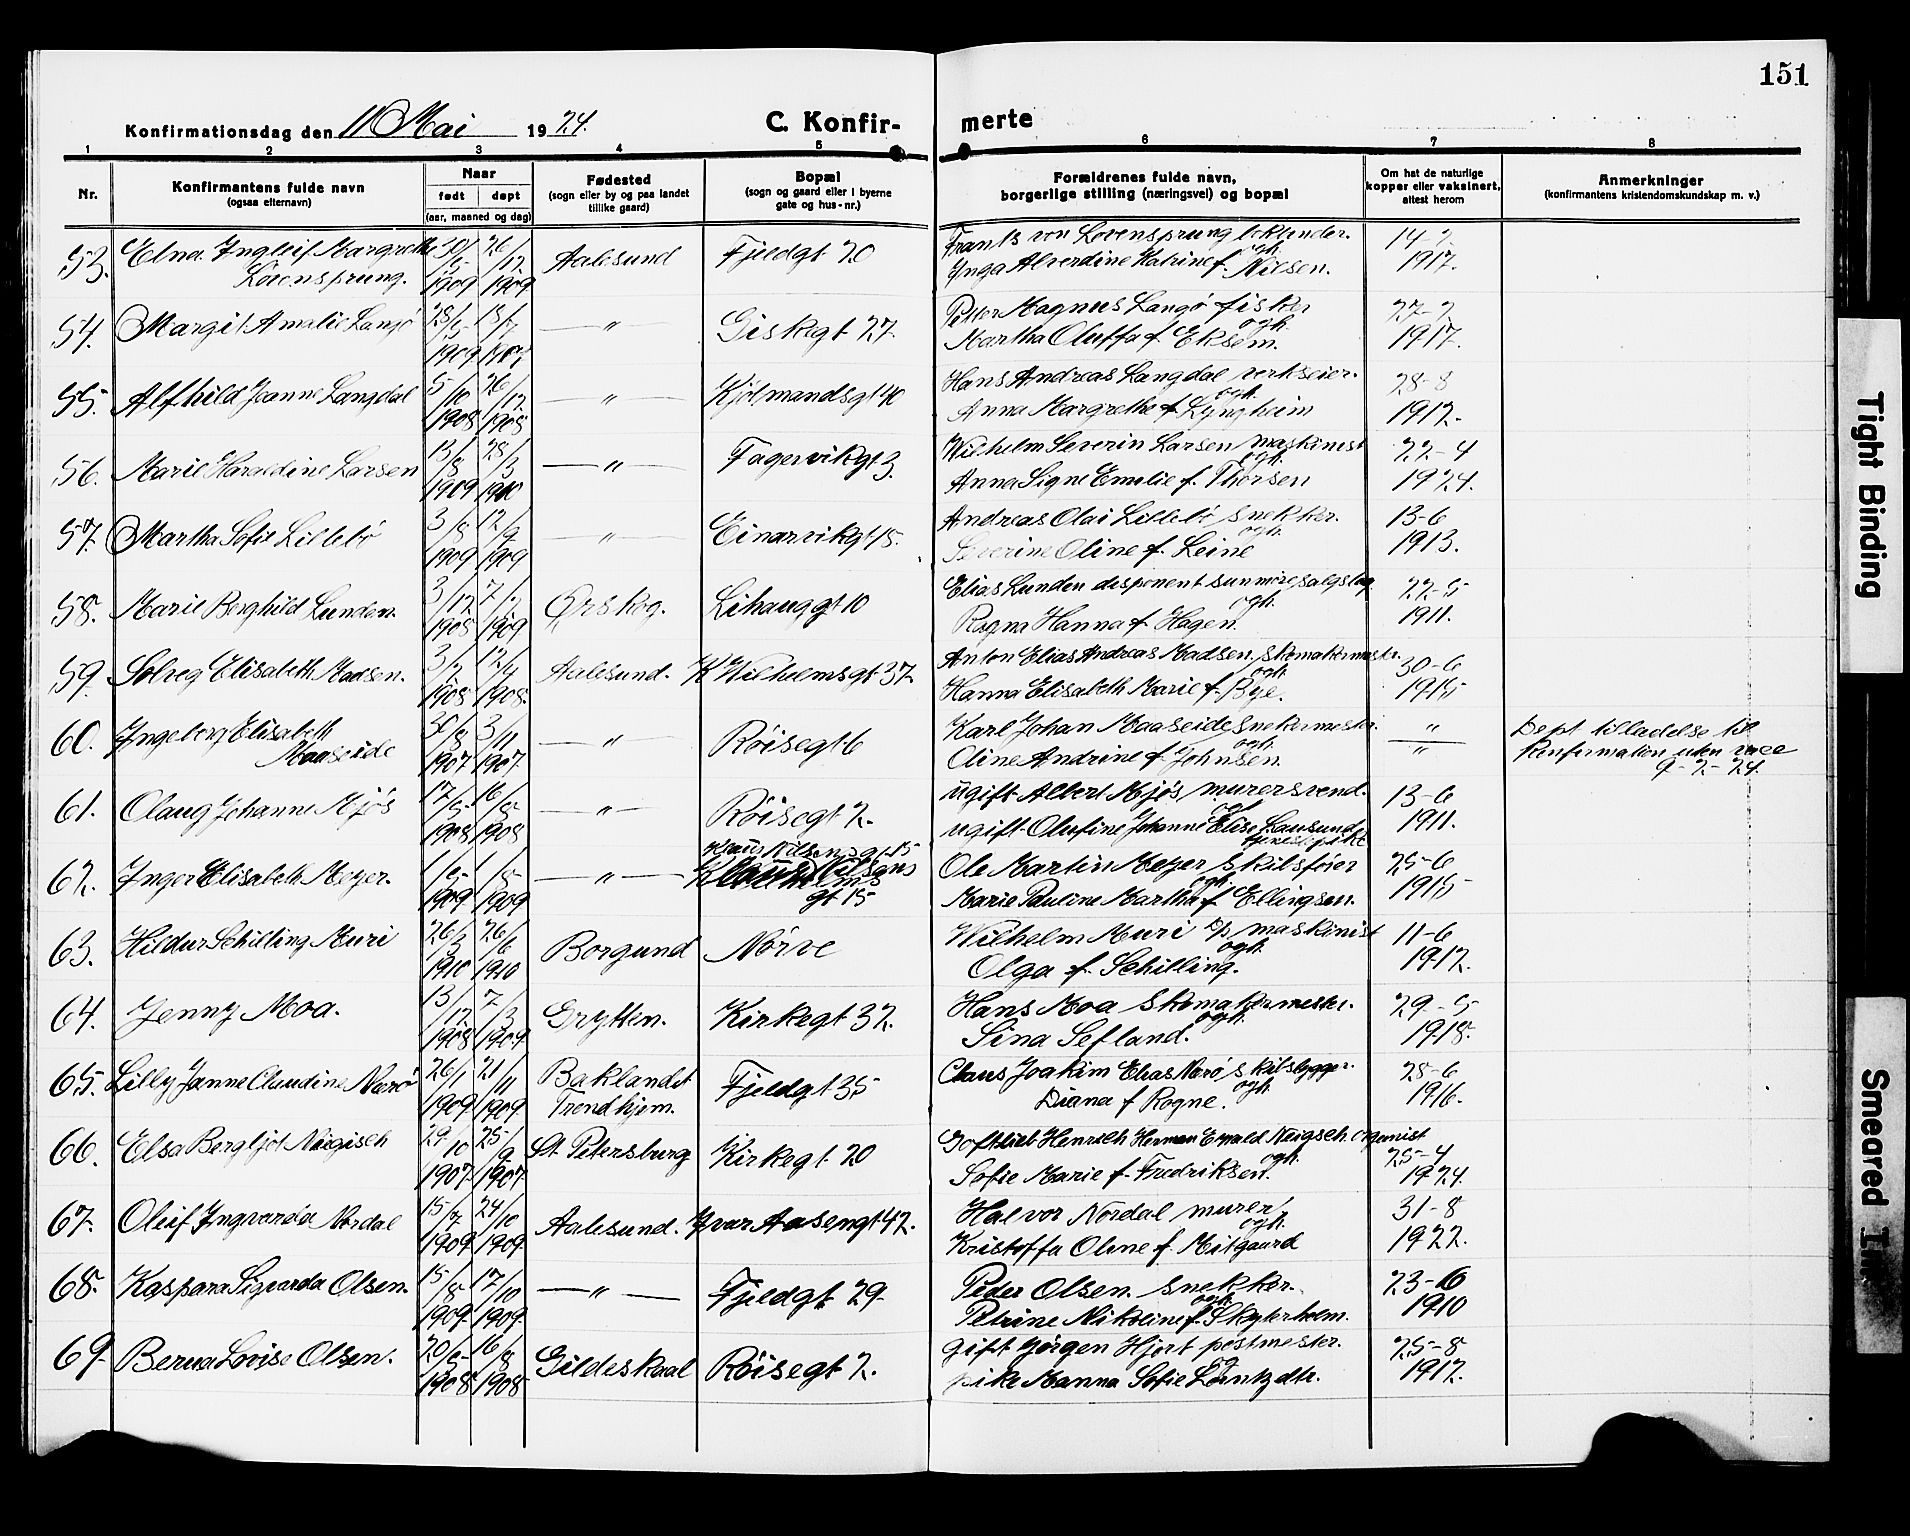 151
Konfirmationsdag den 11 Mai 1924.
C. Konfirmerte
1 2 3 4 5 6 7 8
Nr.
Konfirmantens fulde navn
(ogsaa efternavn)
Naar
født døpt
(aar, maaned og dag)
Fødested
(sogn eller by og paa landet
tillike gaard)
Bopæl
(sogn og gaard eller i byerne
gate og hus-nr.)
Forældrenes fulde navn,
borgerlige stilling (næringsvei) og bopæl
Om hat de naturlige
kopper eller vaksinert,
attest herom
Anmerkninger
(konfirmantens kristendomskundskap m. v.)
53. Elna Ingleif Margrethe 1909 26/12 1909 Aalesund Fjeldgt 20 Frants von Lovensprung
Lövensprung. Ynga Alverdine Katrine f. Nilsen. 1917.
54. Margit Amalie Langö 1909 — " — Giskegt 27. Peter Magnus Langö fisker ogh. 27-2
Martha Oluffa f. Eksem. 1917.
55. Alfhild Joanne Langdal 5/10 1908 26/12 1908 — " — Kjöpmandsgt 40 Hans Andreas Langdal verkseier. ogh. 28-8
Anna Margrethe f. Lyngheim 1912.
56. Marie Haraldine Larsen 13/8 1909 28/3 1910 — " — Fagervikgt 3. Wilhelm Severin Larsen maskinist ogh. 22-4
Anna Signe Emelie f. Thorsen 1924.
57. Martha Sofie Lillebö 3/8 1909 12/9 1909 — " — Einarvikgt 15. Andreas Olai Lillebö snekker. ogh. 13-6
Severine Oline f. Leine 1913.
58. Marie Borghild Lunden. 3/12 1908 7/2 1909 Ørskog. Lihauggt 10 Elias Lunden disponent sunmöre salgslag ogh. 22-5
Ragna Hanna f. Hagen. 1911.
59. Solveg Elisabeth Madsen. 3/2 1908 12/4 1908. Aalesund. K Wilhelmsgt 37 Anton Elias Andreas Madsen, skomakermester. ogh. 30-6
Hanna Elisabeth Marie f. Bye. 1915
60. Ingeborg Elisabeth 30/8 1907 3/11 1907 — " — Röisegt 6 Karl Johan Maaseide snekermester. ogh. "
Maaseide Oline Andrine f. Johnsen. "
Dept tilladelse til
Konfirmation uten
9-2-24.
61. Olaug Johanne Mjös 17/5 1908 16/8 1908 — " — Röisegt 2. ugift Albert Mjös murersvend. og 13-6
ugift Olufine Johanne Elise Lausund 1911.
tjenestepike
62. Inger Elisabeth Meyer. 1909 1909 — " — Klaus Nilsens gt 15
Klaus Nilsens
gt 15
Ole Martin Meyer skibsförer ogh. 25-6
Marie Pauline Martha f. Ellingsen. 1915
63. Hildur Schilling Muri 26/3 1910 26/6 1910 Borgund Nörve Wilhelm Muri D/s maskinist ogh. 11-6
Olga f. Schilling. 1912.
64. Jenny Moa. 13/12 1908 7/3 1909 Grytten. Kirkegt 32. Hans Moa skomakermester. ogh. 29-5
Sina Sefland. 1918.
65. Lilly Janne Claudine Nærö 26/1 1909 21/11 1909 Baklandet Fjeldgt 35 Claus Joakim Elias Nærö, skibsbygger. ogh. 25-6
Trondhjem. Diana f Rogne. 1916.
66. Elsa Bergljot Neigisch 29/10 1907 25/9 1907 St. Petersburg Kirkegt 20 Gottlieb Henrich Herman Ewald Neigsch organist ogh. 25-4
Sofie Marie f. Fredriksen. 1924.
67. Oleif Ingvarda Nordal 15/7 1909 24/10 1909 Aalesund. Ivar Aasengt 42. Halvor Nordal murer. ogh. 31-8
Kristoffa Oline f. Mitgaard 1922.
68. Kaspara Sigvarda Olsen. 15/8 1909 17/10 1909 — " — Fjeldgt. 29 Peder Olsen snekker. ogh. 23-6
Petrine Nikoline f. Skyterholm. 1910
69. Berna Lovise Olsen. 1908 16/8 1908 Gildeskaal Röisegt 2. Gift Jörgen Hjort postmester. og 25-8
pike Hanna Sofie Lorntzdtr. 1912.
Tight Binding
Smeared Ink